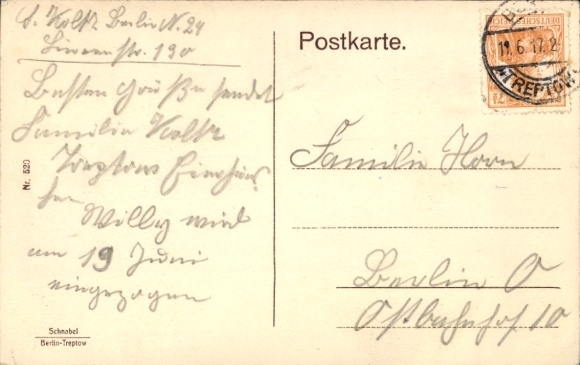 Kolk Berlin N. 24
Linienstr. 190
Besten Grüße sendet
Familie Kolk
Treptow Eierhäus-
chen
Willy wird
am 19 Juni
eingezogen
Nr. 520
Schnabel
Berlin-Treptow
Postkarte.
DEUTSCHES REICH
11.6.17.2
TREPTOW
Familie Horn
Berlin O
Ostbahnhof 10